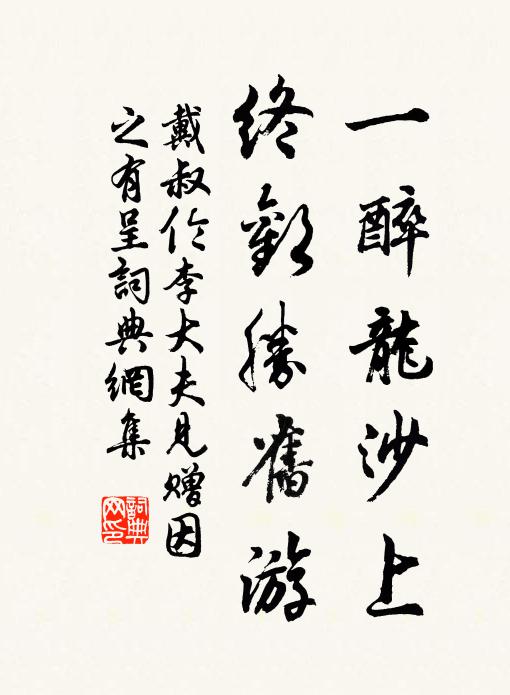 一醉龍沙上
終歡勝舊游
戴叔伦李大夫見赠因
之有呈詞典網集
詞典
网印